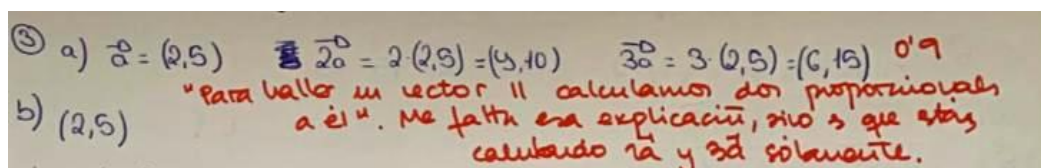 ③ a) a⃗ = (2,5) 2a⃗ = 2·(2,5) = (4,10) 3a⃗ = 3·(2,5) = (6,15) 0'9
"Para hallar un vector || calculamos dos proporcionales
b) (2,5) a él". Me falta esa explicación, sino es que estás
calculando 2a⃗ y 3a⃗ solamente.